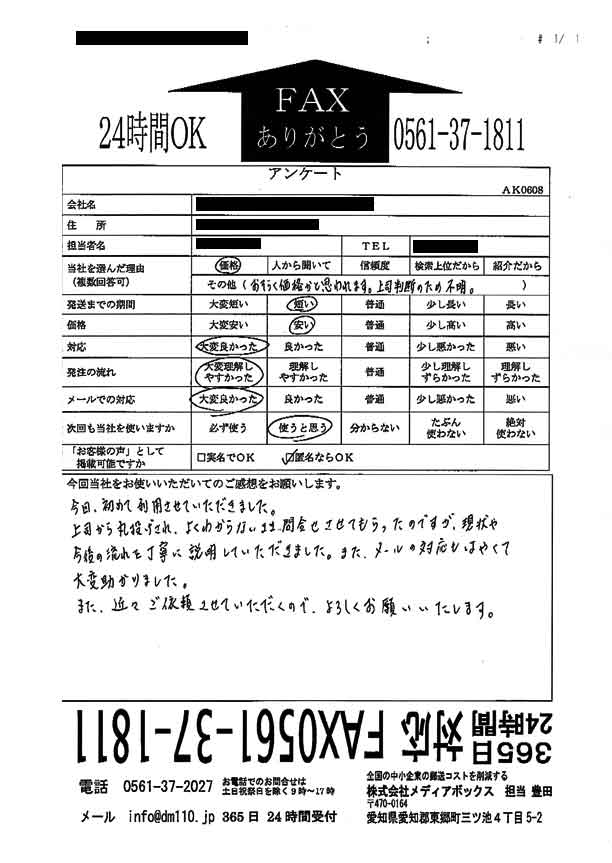 # 1/ 1
FAX
ありがとう
24時間OK
0561-37-1811
アンケート
AK0608
会社名
住 所
担当者名 TEL
当社を選んだ理由 (複数回答可) 価格 人から聞いて 信頼度 検索上位だから 紹介だから
その他 (おそらく価格かと思われます。上司判断のため不明。)
発送までの期間 大変短い 短い 普通 少し長い 長い
価格 大変安い 安い 普通 少し高い 高い
対応 大変良かった 良かった 普通 少し悪かった 悪い
発注の流れ 大変理解しやすかった 理解しやすかった 普通 少し理解しずらかった 理解しずらかった
メールでの対応 大変良かった 良かった 普通 少し悪かった 悪い
次回も当社を使いますか 必ず使う 使うと思う 分からない たぶん使わない 絶対使わない
「お客様の声」として掲載可能ですか □実名でOK ☑匿名ならOK
今回当社をお使いいただいてのご感想をお願いします。
今回、初めて利用させていただきました。
上司から丸投げされ、よくわからないまま問合せさせてもらったのですが、現状や
今後の流れを丁寧に説明していただきました。また、メールの対応もはやくて
大変助かりました。
また、近々ご依頼させていただくので、よろしくお願いいたします。
365日
24時間 対応 FAX0561-37-1811
電話 0561-37-2027 お電話でのお問合せは
土日祝祭日を除く9時~17時
メール info@dm110.jp 365日 24時間受付
全国の中小企業の郵送コストを削減する
株式会社メディアボックス 担当 豊田
〒470-0164
愛知県愛知郡東郷町三ツ池4丁目5-2